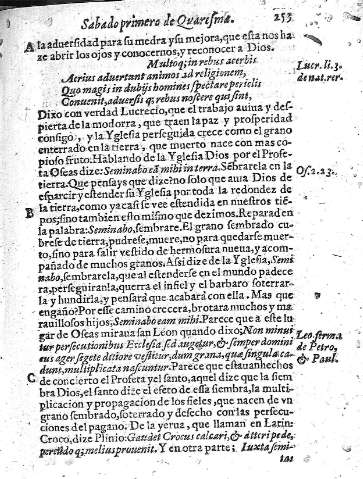 Sabado primero de Quaresma. 253
A la aduersidad para su medra y su mejora, que esta nos ha-
ze abrir los ojos y conocernos, y reconocer a Dios.
Multoq; in rebus acerbis
Acrius aduertunt animos ad religionem,
Quo magis in dubijs homines spectare periclis
Conuenit, aduersis q; rebus noscere qui sint,
Lucr. li. 3.
de nat. rer.
Dixo con verdad Lucrecio, que el trabajo auiua y des-
pierta de la modorra, que traen la paz y prosperidad
consigo, y la Yglesia perseguida crece como el grano
enterrado en la tierra, que muerto nace con mas co-
pioso fruto. Hablando de la Yglesia Dios por el Profe-
ta Oseas dize: Seminabo eā mihi in terra. Sebrarela en la
Os. 2. 23.
tierra. Que pensays que dize? no solo que auia Dios de
esparcir y estender su Yglesia por toda la redondez de
B la tierra, como ya casi se vee estendida en nuestros tiē-
pos; sino tambien esto mismo que dezimos. Reparad en
la palabra: Seminabo, sembrare. El grano sembrado cu-
brese de tierra, pudrese, muere, no para quedarse muer-
to, sino para salir vestido de hermosura nueua, y acom-
pañado de muchos granos. Assi dize de la Yglesia, Semi
nabo, sembrarela, que al estenderse en el mundo padece
ra, perseguiranla, querra el infiel y el barbaro soterrar-
la y hundirla, y pensara que acabará con ella. Mas que
engaño? Por esse camino crecera, brotara muchos y ma
rauillosos hijos, Seminabo eam mihi. Parece que a este lu
gar de Oseas miraua san Leon quando dixo; Non minui
tur persecutionibus Ecclesia sed augetur, & semper domini
cus ager segete ditiore vestitur, dum grana, que singula ca-
dunt, multiplicata nascuntur. Parece que estauan hechos
Leo. serm. 1
de Petro,
& Paul.
C de concierto el Profeta y el santo, aquel dize que la siem
bra Dios, el santo dize el efeto de essa siembra, la multi-
plicacion y propagacion de los fieles, que nacen de vn
grano sembrado, soterrado y desecho con las persecu-
ciones del pagano. De la yerua, que llaman en Latin
Croco, dize Plinio: Gaudet Crocus calcari, & atteri pede,
pereūdo q; melius prouenit. Y en otra parte; Iuxta semi-
tas